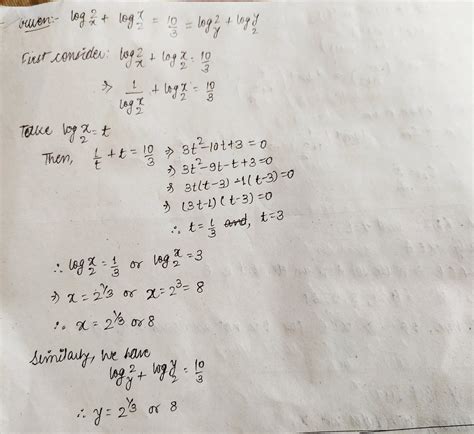 Given:- log 2/x + log x/2 = 10/3 = log 2/y + log y/2
First consider: log 2/x + log x/2 = 10/3
⇒ 1/log x/2 + log x/2 = 10/3
Take log x/2 = t
Then, 1/t + t = 10/3 ⇒ 3t²-10t+3=0
⇒ 3t²-9t-t+3=0
⇒ 3t(t-3)-1(t-3)=0
⇒ (3t-1)(t-3)=0
∴ t=1/3 and, t=3
∴ log x/2 = 1/3 or log x/2 = 3
⇒ x = 2^1/3 or x = 2³ = 8
∴ x = 2^1/3 or 8
Similarly, we have
log 2/y + log y/2 = 10/3
∴ y = 2^1/3 or 8